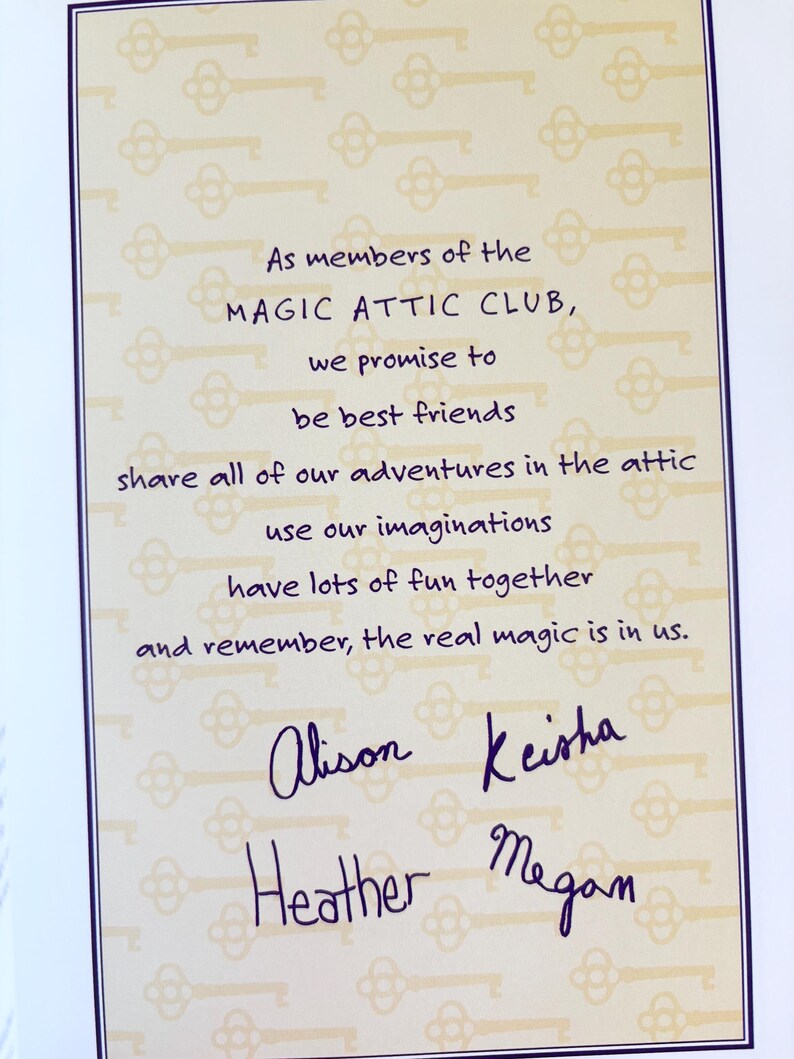 As members of the
MAGIC ATTIC CLUB,
we promise to
be best friends
share all of our adventures in the attic
use our imaginations
have lots of fun together
and remember, the real magic is in us.
Alison Keisha
Heather Megan